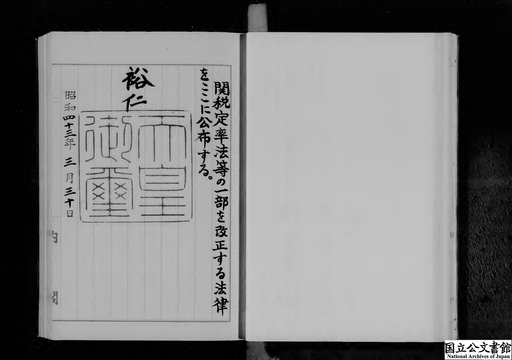 関税定率法等の一部を改正する法律
をここに公布する。
裕仁
天皇
御璽
昭和四十三年三月三十日
内閣
国立公文書館
National Archives of Japan